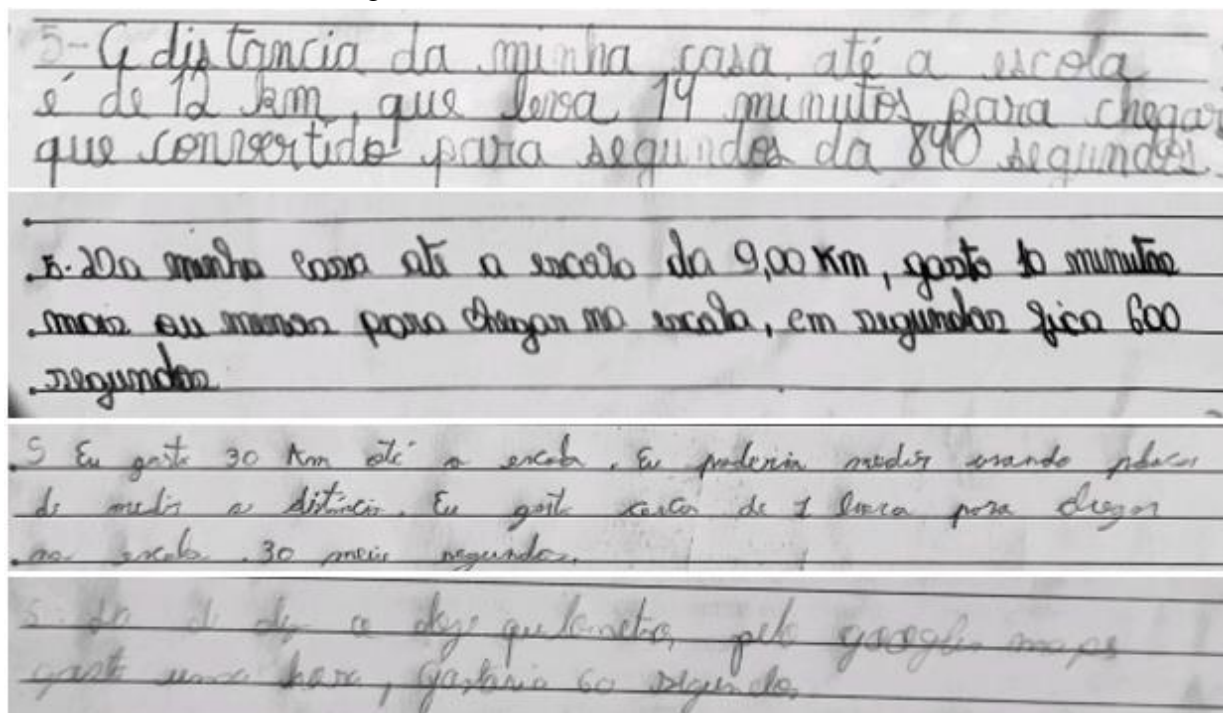 5- A distancia da minha casa até a escola
é de 12 km, que leva 14 minutos para chegar
que convertido para segundos da 840 segundos.
5. Da minha casa até a escola da 9,00 Km, gasto 10 minutos
mais ou menos para chegar na escola, em segundos fica 600
segundos
5 Eu gasto 30 Km até a escola. Eu poderia medir usando placas
de medir a distância. Eu gasto cerca de 1 hora para chegar
na escola. 30 meio segundos.
5. da de dez a doze quilometros pelo google maps
gasto uma hora, gastario 60 segundos